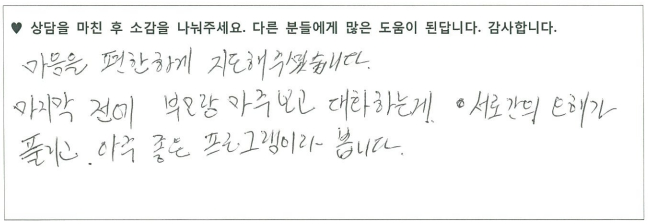 ♥ 상담을 마친 후 소감을 나눠주세요. 다른 분들에게 많은 도움이 된답니다. 감사합니다.
마음을 편한하게 지도해주셨습니다.
마지막 전에 부모랑 마주보고 대화하는게. 서로간의 오해가
풀리고. 아주 좋은 프로그램이라 봅니다.